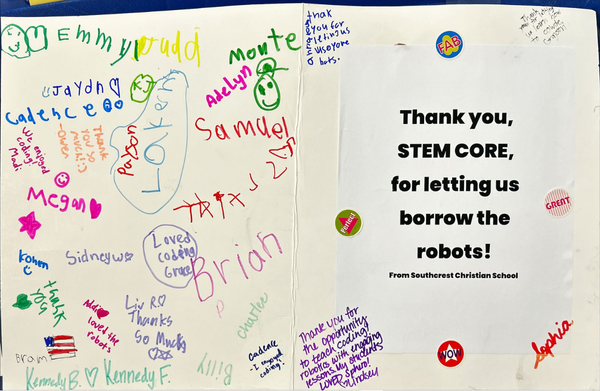 Emmy
Judd
Monte
Adelyn
Jaydn
Cadence
Payson
Loken
Samuel
We enjoyed
coding!
Madi
THANK
YOU SO
MUCH! :)
-Owen
Megan
Kohen
Sidney
Loved
coding
Grace
Brian
P
thank
you
Addi
loved the
robots
Liv R
Thanks
So Much
Charlee
Bram
Kennedy B.
Kennedy F.
Billy
Cadence
-I enjoyed
coding.
thak
you for
letting us
use your
bots.
Thank you for letting
us learn how
to code
FAB
Thank you,
STEM CORE,
for letting us
borrow the
robots!
From Southcrest Christian School
Perfect
GREAT
WOW
Thank you for
the opportunity
to teach coding/
robotics with engaging
lessons. My students
LOVED Sphero!
Sophia